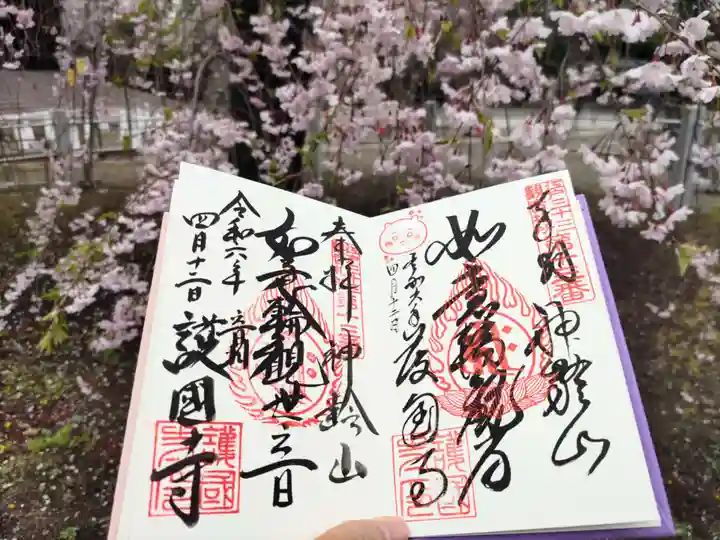 奉拝 神齢山
如意輪観音
護国寺
令和六年
四月十二日
奉拝 神齢山
如意輪觀世音
令和六年
四月十二日
護國寺